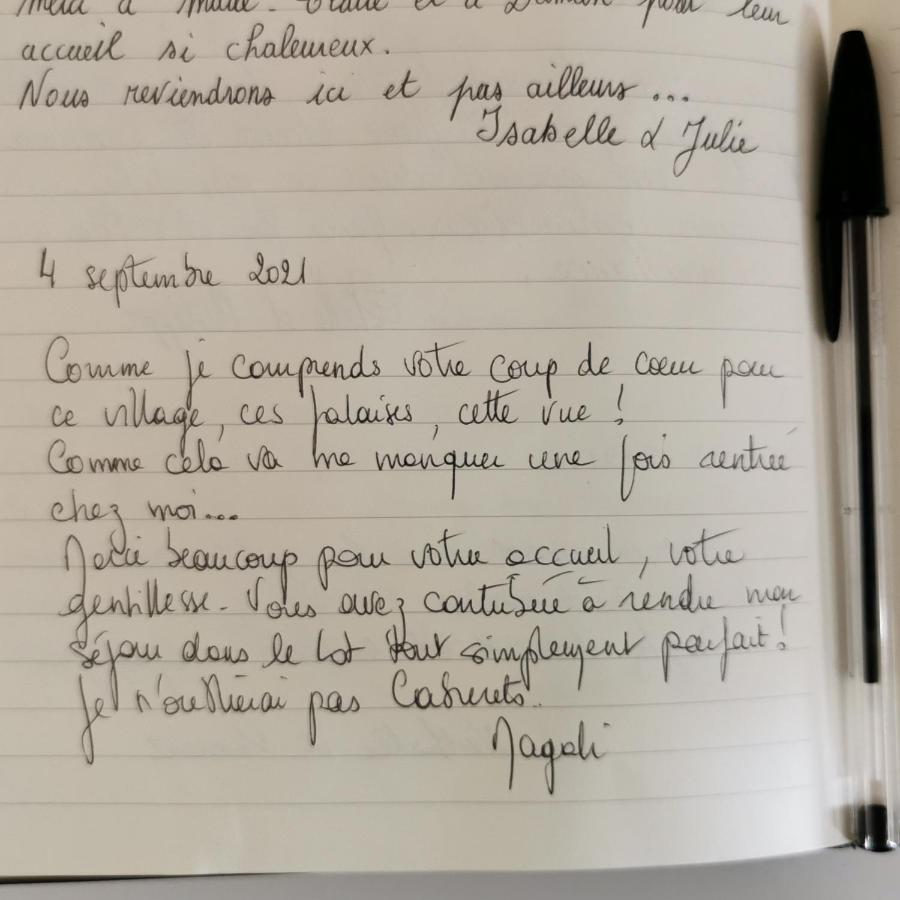 Merci à Marie-Claude et à Damien pour leur
accueil si chaleureux.
Nous reviendrons ici et pas ailleurs...
Isabelle & Julie
4 septembre 2021
Comme je comprends votre coup de cœur pour
ce village, ces falaises, cette vue !
Comme cela va me manquer une fois rentrée
chez moi...
Merci beaucoup pour votre accueil, votre
gentillesse. Vous avez contribué à rendre mon
séjour dans le Lot tout simplement parfait !
Je n'oublierai pas Cabrerets.
Magali